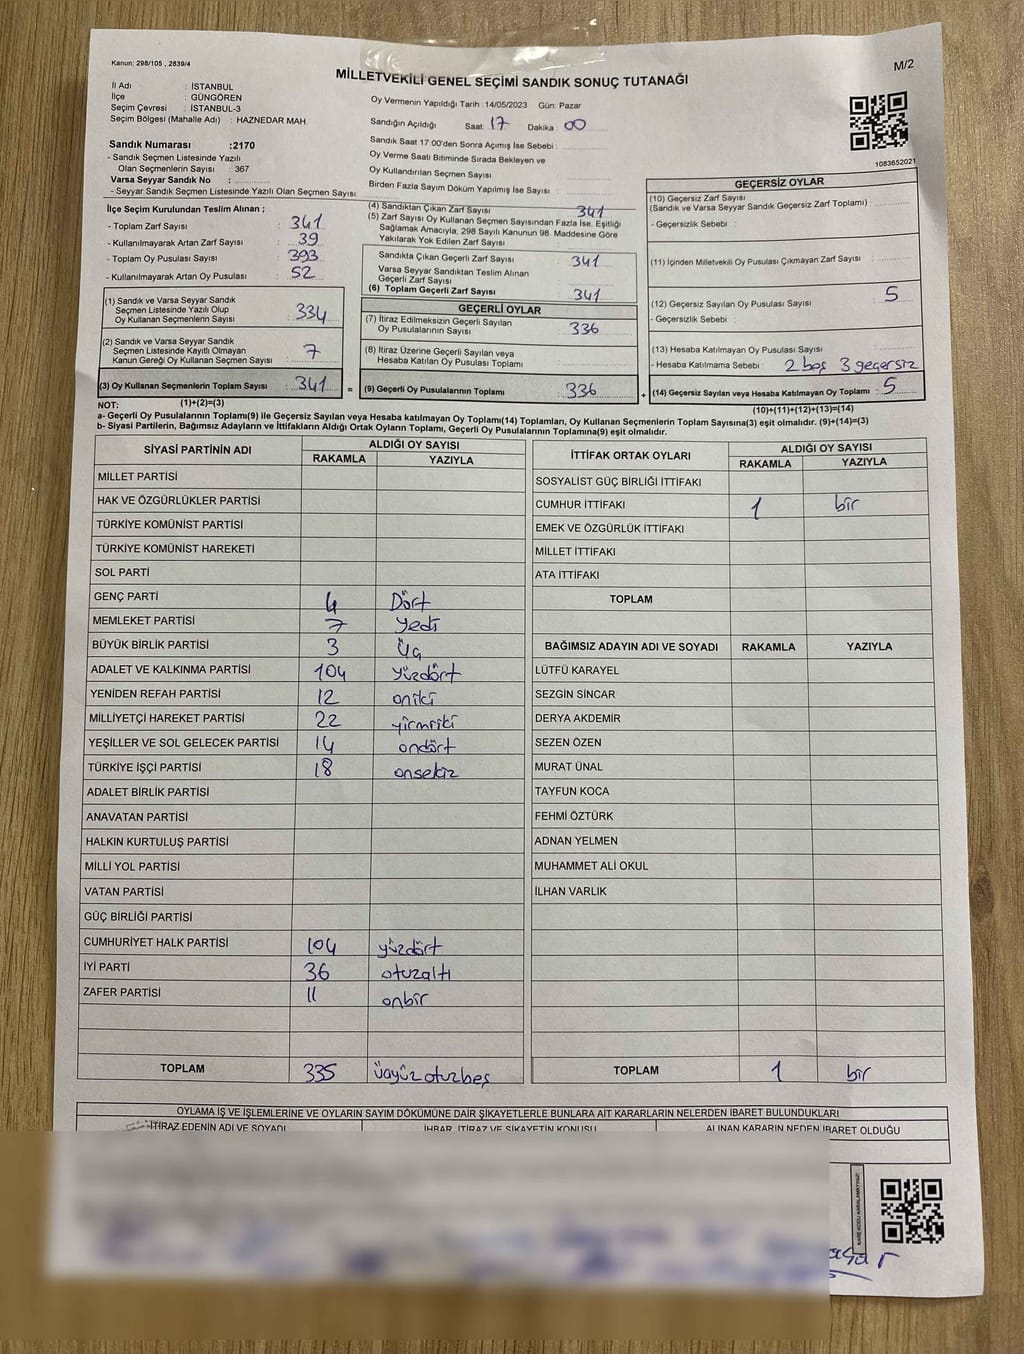 Kanun: 298/105 , 2839/4
M/2
MİLLETVEKİLİ GENEL SEÇİMİ SANDIK SONUÇ TUTANAĞI
İl Adı : İSTANBUL
İlçe : GÜNGÖREN
Seçim Çevresi : İSTANBUL-3
Seçim Bölgesi (Mahalle Adı) : HAZNEDAR MAH
Sandık Numarası :2170
- Sandık Seçmen Listesinde Yazılı
Olan Seçmenlerin Sayısı : 367
Varsa Seyyar Sandık No :
- Seyyar Sandık Seçmen Listesinde Yazılı Olan Seçmen Sayısı:
Oy Vermenin Yapıldığı Tarih :14/05/2023 Gün: Pazar
Sandığın Açıldığı Saat: 17 Dakika : 00
Sandık Saat 17:00'den Sonra Açımış İse Sebebi :
Oy Verme Saati Bitiminde Sırada Bekleyen ve
Oy Kullandırılan Seçmen Sayısı
Birden Fazla Sayım Döküm Yapılmış İse Sayısı :
1083652021
İlçe Seçim Kurulundan Teslim Alınan ;
- Toplam Zarf Sayısı : 341
- Kullanılmayarak Artan Zarf Sayısı : 39
- Toplam Oy Pusulası Sayısı : 393
- Kullanılmayarak Artan Oy Pusulası : 52
(1) Sandık ve Varsa Seyyar Sandık
Seçmen Listesinde Yazılı Olup
Oy Kullanan Seçmenlerin Sayısı : 334
(2) Sandık ve Varsa Seyyar Sandık
Seçmen Listesinde Kayıtlı Olmayan
Kanun Gereği Oy Kullanan Seçmen Sayısı : 7
(3) Oy Kullanan Seçmenlerin Toplam Sayısı : 341 =
(4) Sandıktan Çıkan Zarf Sayısı : 341
(5) Zarf Sayısı Oy Kullanan Seçmen Sayısından Fazla İse, Eşitliği
Sağlamak Amacıyla; 298 Sayılı Kanunun 98. Maddesine Göre
Yakılarak Yok Edilen Zarf Sayısı :
Sandıkta Çıkan Geçerli Zarf Sayısı : 341
Varsa Seyyar Sandıktan Teslim Alınan
Geçerli Zarf Sayısı :
(6) Toplam Geçerli Zarf Sayısı : 341
GEÇERLİ OYLAR
(7) İtiraz Edilmeksizin Geçerli Sayılan
Oy Pusulalarının Sayısı : 336
(8) İtiraz Üzerine Geçerli Sayılan veya
Hesaba Katılan Oy Pusulası Toplamı :
(9) Geçerli Oy Pusulalarının Toplamı : 336 +
GEÇERSİZ OYLAR
(10) Geçersiz Zarf Sayısı
(Sandık ve Varsa Seyyar Sandık Geçersiz Zarf Toplamı) :
- Geçersizlik Sebebi
(11) İçinden Milletvekili Oy Pusulası Çıkmayan Zarf Sayısı :
(12) Geçersiz Sayılan Oy Pusulası Sayısı : 5
- Geçersizlik Sebebi :
(13) Hesaba Katılmayan Oy Pusulası Sayısı :
- Hesaba Katılmama Sebebi : 2 boş 3 geçersiz
(14) Geçersiz Sayılan veya Hesaba Katılmayan Oy Toplamı : 5
NOT: (1)+(2)=(3)
(10)+(11)+(12)+(13)=(14)
a- Geçerli Oy Pusulalarının Toplamı(9) ile Geçersiz Sayılan veya Hesaba katılmayan Oy Toplamı(14) Toplamları, Oy Kullanan Seçmenlerin Toplam Sayısına(3) eşit olmalıdır. (9)+(14)=(3)
b- Siyasi Partilerin, Bağımsız Adayların ve İttifakların Aldığı Ortak Oyların Toplamı, Geçerli Oy Pusulalarının Toplamına(9) eşit olmalıdır.
SİYASİ PARTİNİN ADI ALDIĞI OY SAYISI
RAKAMLA YAZIYLA
MİLLET PARTİSİ
HAK VE ÖZGÜRLÜKLER PARTİSİ
TÜRKİYE KOMÜNİST PARTİSİ
TÜRKİYE KOMÜNİST HAREKETİ
SOL PARTİ
GENÇ PARTİ 4 Dört
MEMLEKET PARTİSİ 7 yedi
BÜYÜK BİRLİK PARTİSİ 3 üç
ADALET VE KALKINMA PARTİSİ 104 yüzdört
YENİDEN REFAH PARTİSİ 12 oniki
MİLLİYETÇİ HAREKET PARTİSİ 22 yirmiiki
YEŞİLLER VE SOL GELECEK PARTİSİ 14 ondört
TÜRKİYE İŞÇİ PARTİSİ 18 onsekiz
ADALET BİRLİK PARTİSİ
ANAVATAN PARTİSİ
HALKIN KURTULUŞ PARTİSİ
MİLLİ YOL PARTİSİ
VATAN PARTİSİ
GÜÇ BİRLİĞİ PARTİSİ
CUMHURİYET HALK PARTİSİ 104 yüzdört
İYİ PARTİ 36 otuzaltı
ZAFER PARTİSİ 11 onbir
TOPLAM 335 üçyüzotuzbeş
İTTİFAK ORTAK OYLARI ALDIĞI OY SAYISI
RAKAMLA YAZIYLA
SOSYALİST GÜÇ BİRLİĞİ İTTİFAKI
CUMHUR İTTİFAKI 1 bir
EMEK VE ÖZGÜRLÜK İTTİFAKI
MİLLET İTTİFAKI
ATA İTTİFAKI
TOPLAM
BAĞIMSIZ ADAYIN ADI VE SOYADI RAKAMLA YAZIYLA
LÜTFÜ KARAYEL
SEZGİN SİNCAR
DERYA AKDEMİR
SEZEN ÖZEN
MURAT ÜNAL
TAYFUN KOCA
FEHMİ ÖZTÜRK
ADNAN YELMEN
MUHAMMET ALİ OKUL
İLHAN VARLIK
TOPLAM 1 bir
OYLAMA İŞ VE İŞLEMLERİNE VE OYLARIN SAYIM DÖKÜMÜNE DAİR ŞİKAYETLERLE BUNLARA AİT KARARLARIN NELERDEN İBARET BULUNDUKLARI
İTİRAZ EDENİN ADI VE SOYADI İHBAR, İTİRAZ VE ŞİKAYETİN KONUSU ALINAN KARARIN NEDEN İBARET OLDUĞU
KARE KODU KARALAMAYINIZ!